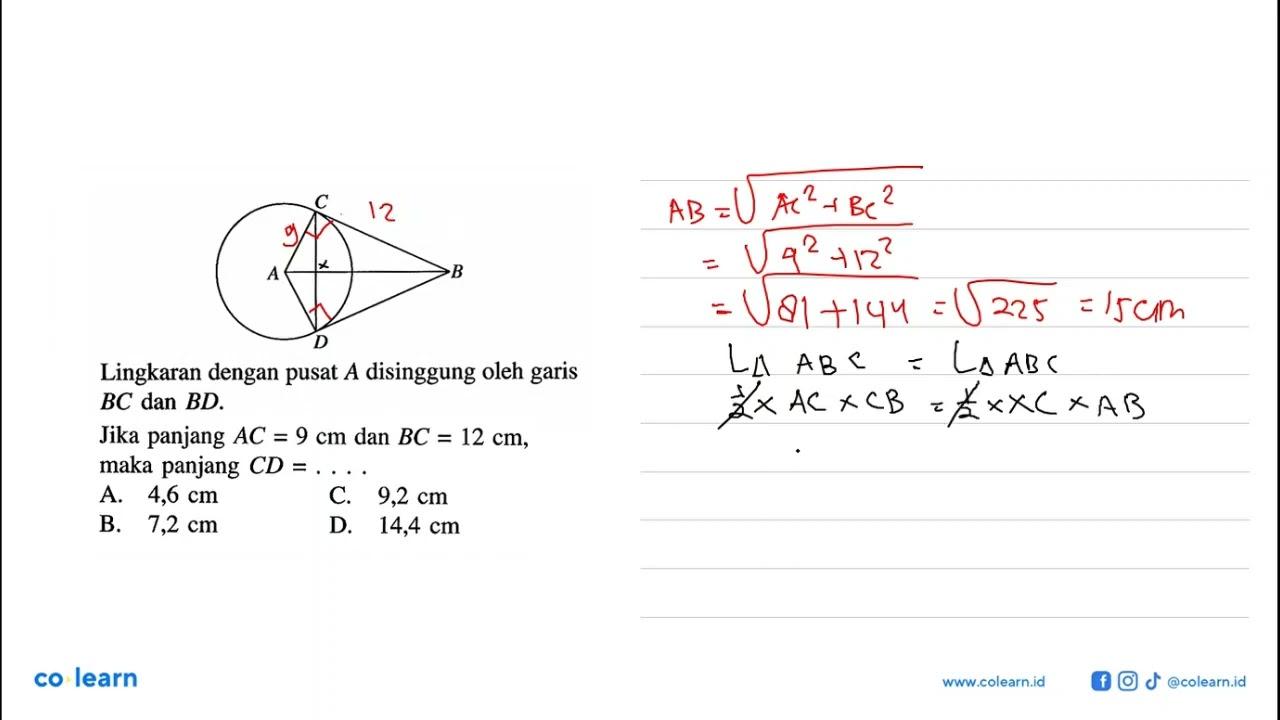 C
12
9
A
x
B
D
Lingkaran dengan pusat A disinggung oleh garis
BC dan BD.
Jika panjang AC = 9 cm dan BC = 12 cm,
maka panjang CD = . . . .
A. 4,6 cm
C. 9,2 cm
B. 7,2 cm
D. 14,4 cm
AB = √AC² + BC²
= √9² + 12²
= √81 + 144 = √225 = 15 cm
L△ ABC = L△ ABC
1/2 × AC × CB = 1/2 × XC × AB
co learn
www.colearn.id
@colearn.id